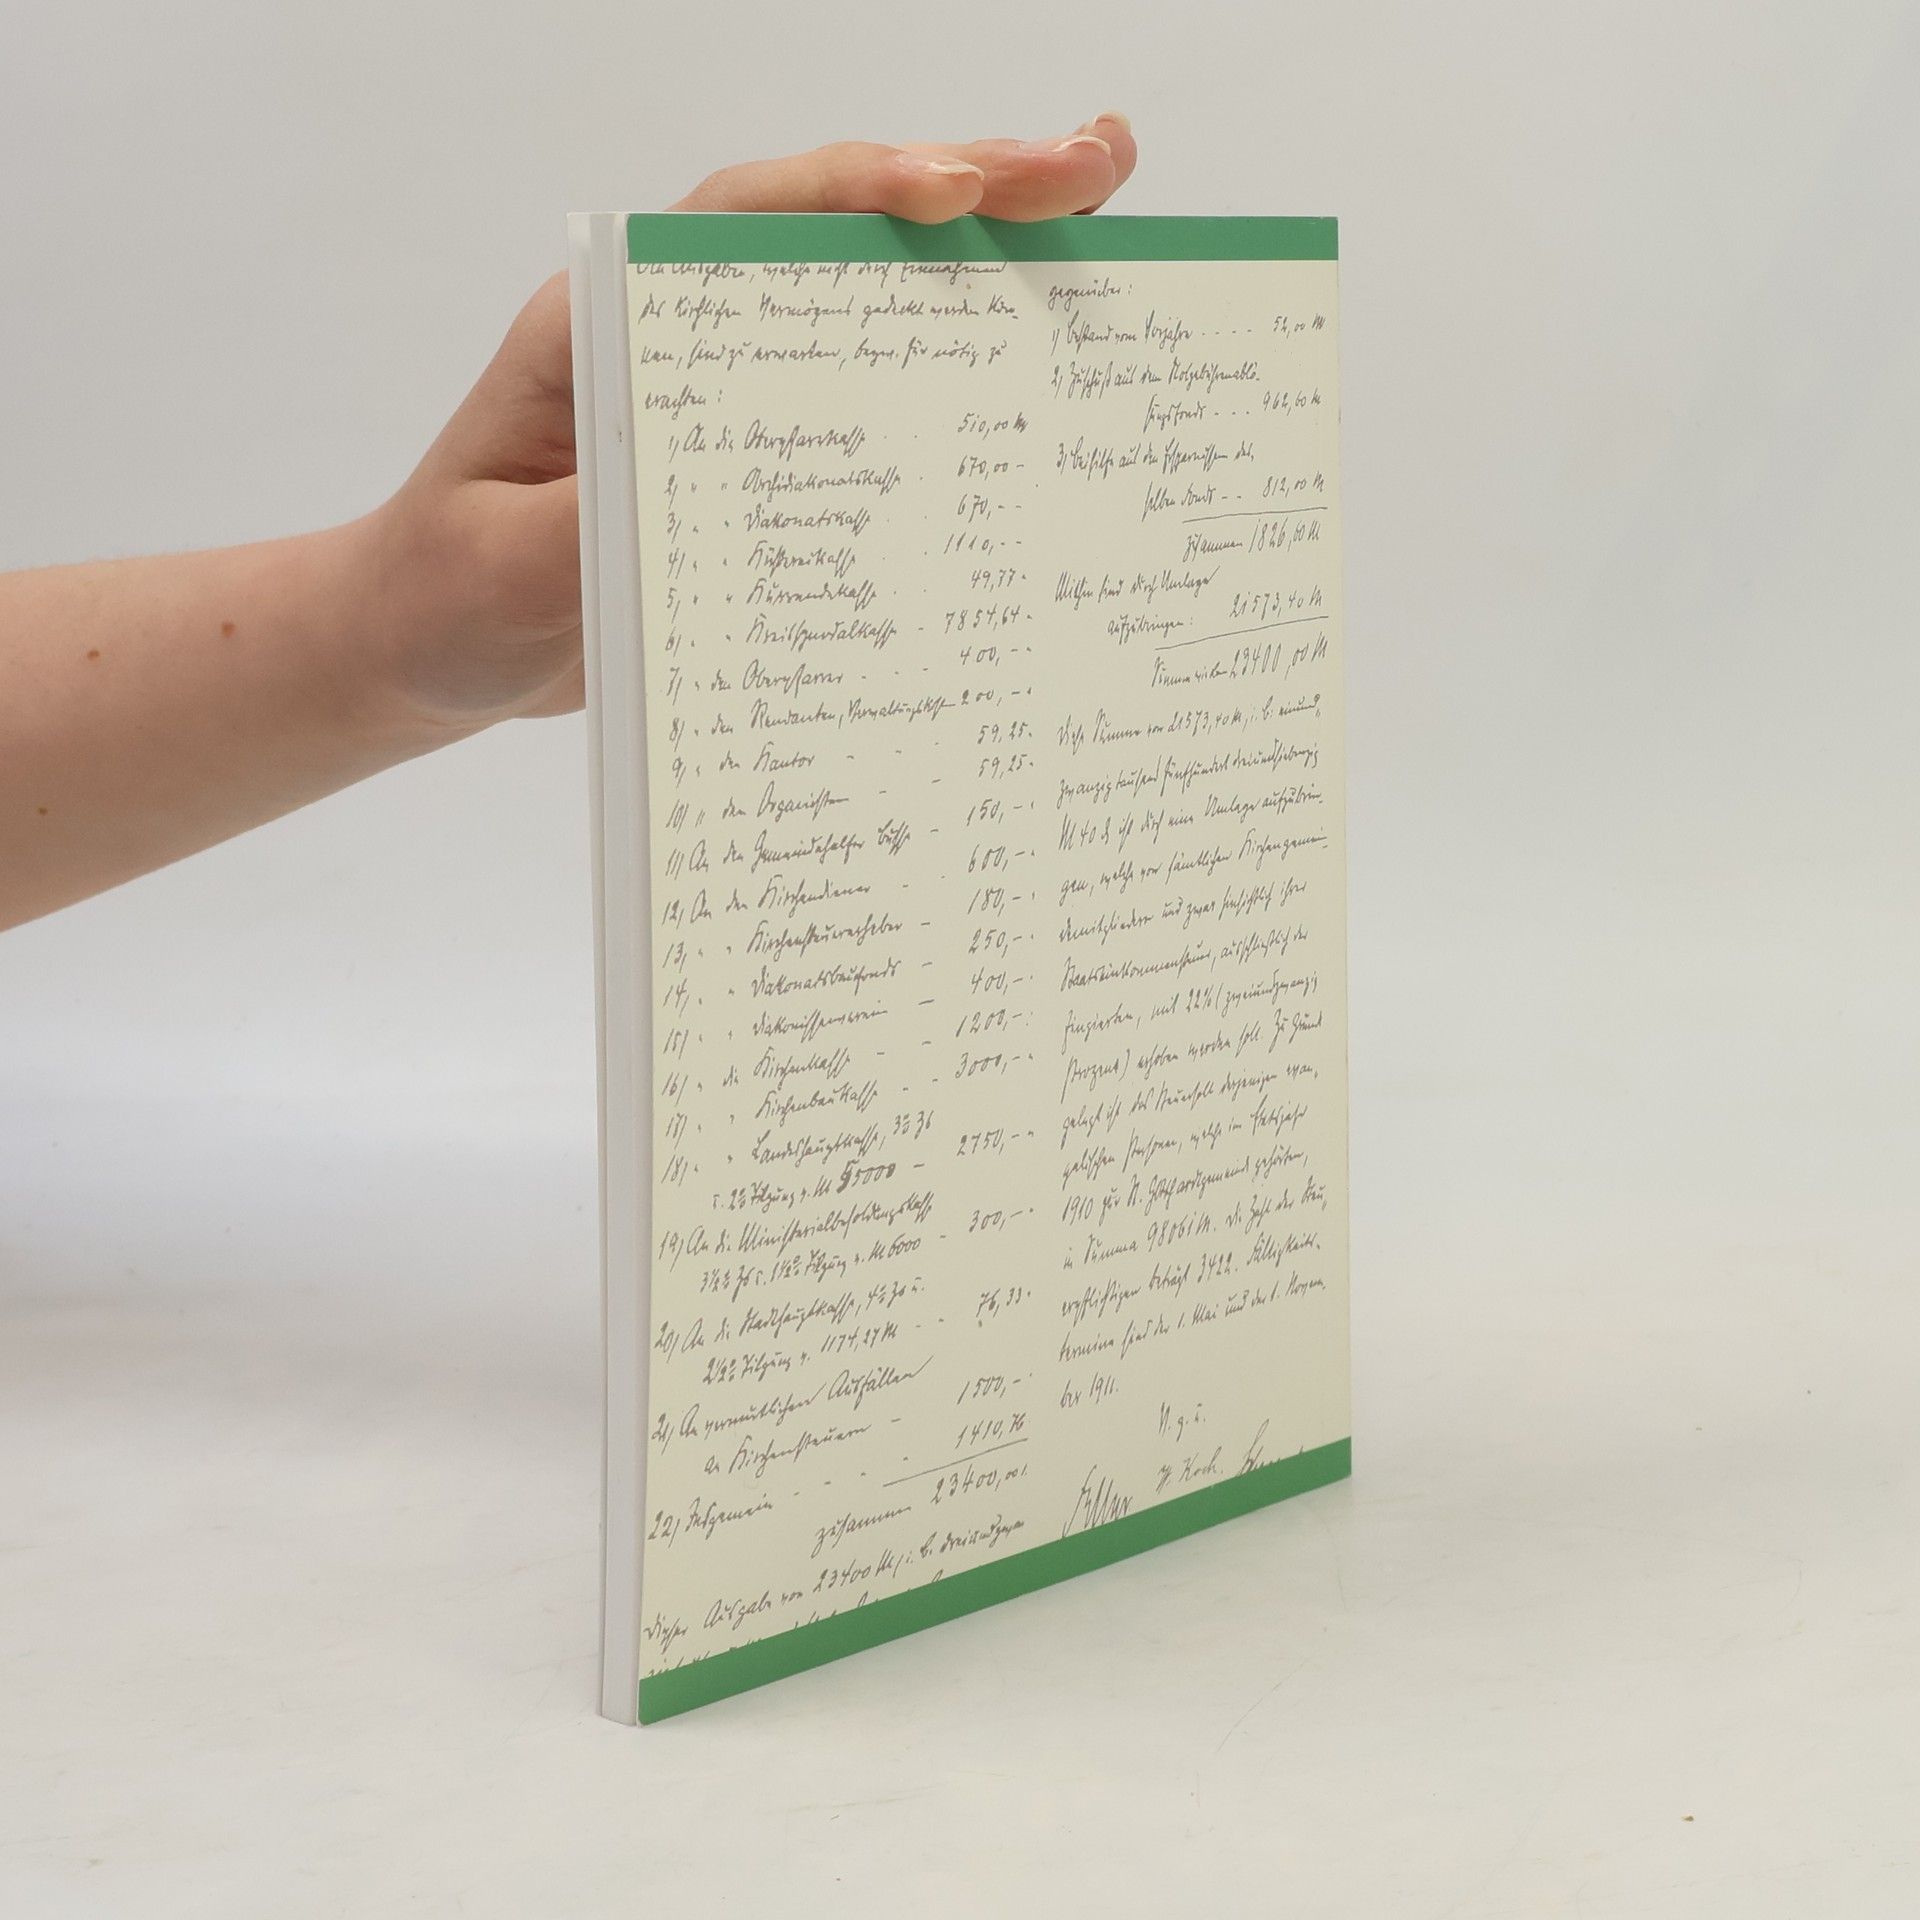 An Ausgaben, welche nicht durch Einnahmen
des kirchlichen Vermögens gedeckt werden kön-
nen, sind zu erwarten, bezw. für nötig zu
erachten:
1) An die Oberpfarrkasse . . 510,00 M
2) " " Archidiakonatskasse . 670,00 -
3) " " Diakonatskasse . . 670,- -
4) " " Küstereikasse . . 1110,- -
5) " " Kurrendekasse . . 49,77 "
6) " " Kreissynodalkasse - 7854,64 "
7) " den Oberpfarrer - - - 400,- "
8) " den Rendanten, Verwaltungskosten 200,- "
9) " den Kantor - - - 59,25 "
10) " den Organisten - - 59,25 "
11) An den Gemeindehelfer - 150,- "
12) An den Kirchendiener - - 600,- "
13) " " Kirchensteuererheber - 180,- "
14) " " Diakonatsbaufonds - 250,- "
15) " " Diakonissenverein - 400,- "
16) " die Kirchenkasse - - 1200,- "
17) " " Kirchenbaukasse - - 3000,- "
18) " " Landeshauptkasse, 3% Zs
u. 2% Tilgung v. M 55000 - 2750,- "
19) An die Ministerialbesoldungskasse
3½% Zs u. 1½% Tilgung v. M 6000 - 300,- "
20) An die Stadthauptkasse, 4% Zs u.
2½% Tilgung v. 1174,27 M - - 76,33 "
21) An vermutlichen Ausfällen
an Kirchensteuern - 1500,- "
22) Insgemein - - - - 1410,76
zusammen 23400,00
Dieser Ausgabe von 23400 M, i. B. dreiundzwan
gegenüber:
1) Bestand vom Vorjahre - - - - 52,00 M
2) Zuschuß aus dem Stolgebührenablö-
sungsfonds - - - 962,60 M
3) Beihilfe aus den Ersparnissen des-
selben Fonds - - 812,00 M
zusammen 1826,60 M
Mithin sind durch Umlage
aufzubringen: 21573,40 M
Summa wie oben 23400,00 M
Diese Summe von 21573,40 M, i. B. einund-
zwanzigtausend fünfhundert dreiundsiebenzig
M 40 ₰ ist durch eine Umlage aufzubrin-
gen, welche von sämtlichen Kirchengemein-
demitgliedern und zwar hinsichtlich ihrer
Staatseinkommensteuer, ausschließlich der
fingierten, mit 22% (zweiundzwanzig
Prozent) erhoben werden soll. Zu Grunde
gelegt ist das Steuersoll derjenigen evan-
gelischen Personen, welche im Etatsjahr
1910 zur St. Gotthardtgemeinde gehörten,
in Summa 98061 M. Die Zahl der Steu-
erpflichtigen beträgt 3422. Fälligkeits-
termine sind der 1. Mai und der 1. Novem-
ber 1911.
V. g. u.
Koch.